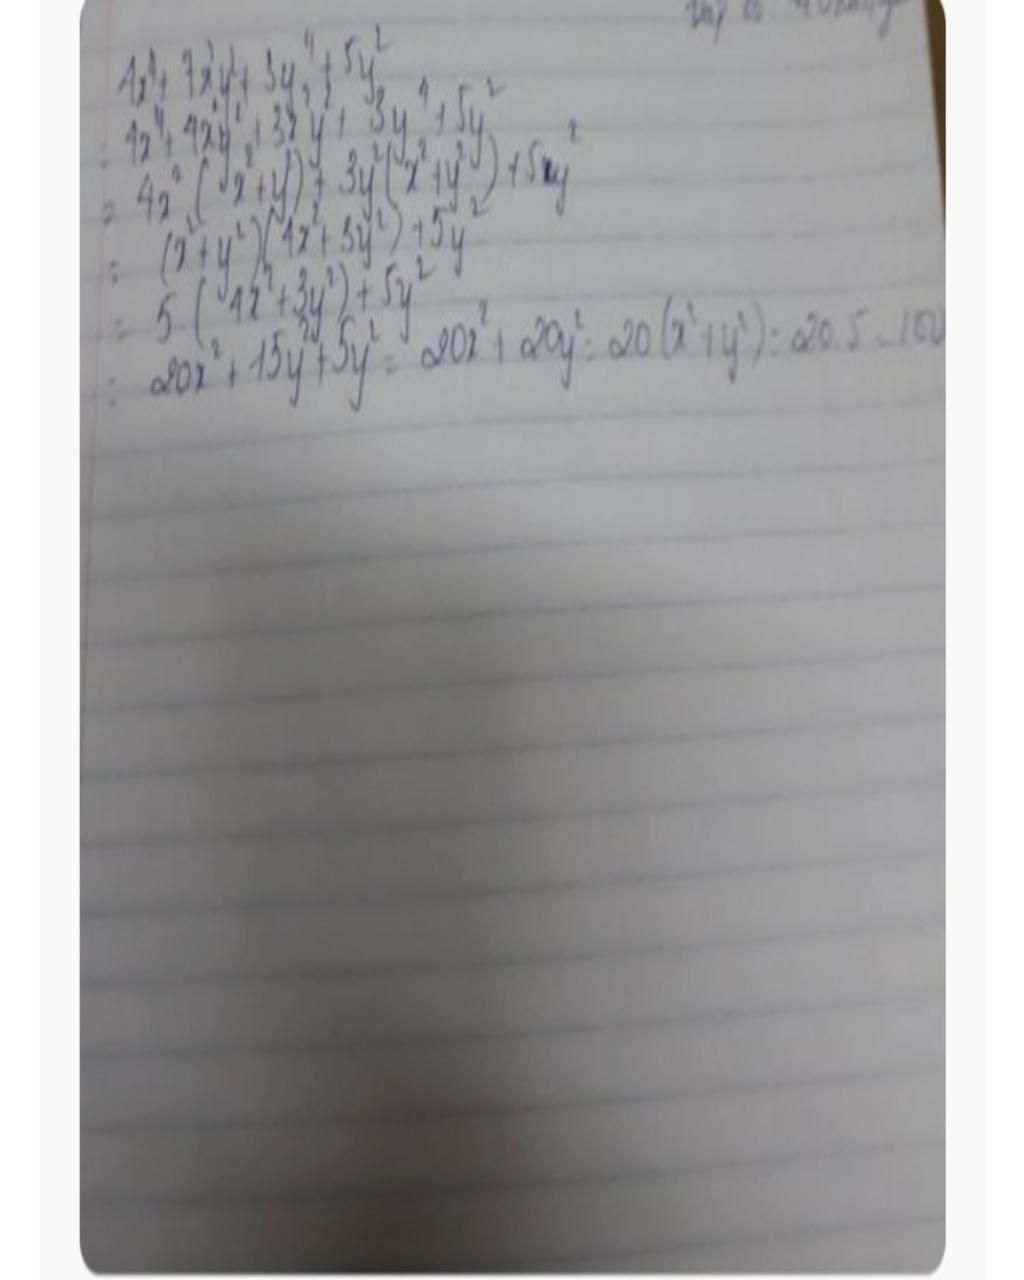 4x⁴ + 7x²y² + 3y⁴ + 5y²
= 4x⁴ + 4x²y² + 3x²y² + 3y⁴ + 5y²
= 4x² (x² + y) + 3y² (x² + y²) + 5y²
= (x² + y²)(4x² + 3y²) + 5y²
= 5 (4x² + 3y²) + 5y²
= 20x² + 15y² + 5y² = 20x² + 20y² = 20 (x² + y²) = 20.5 = 100